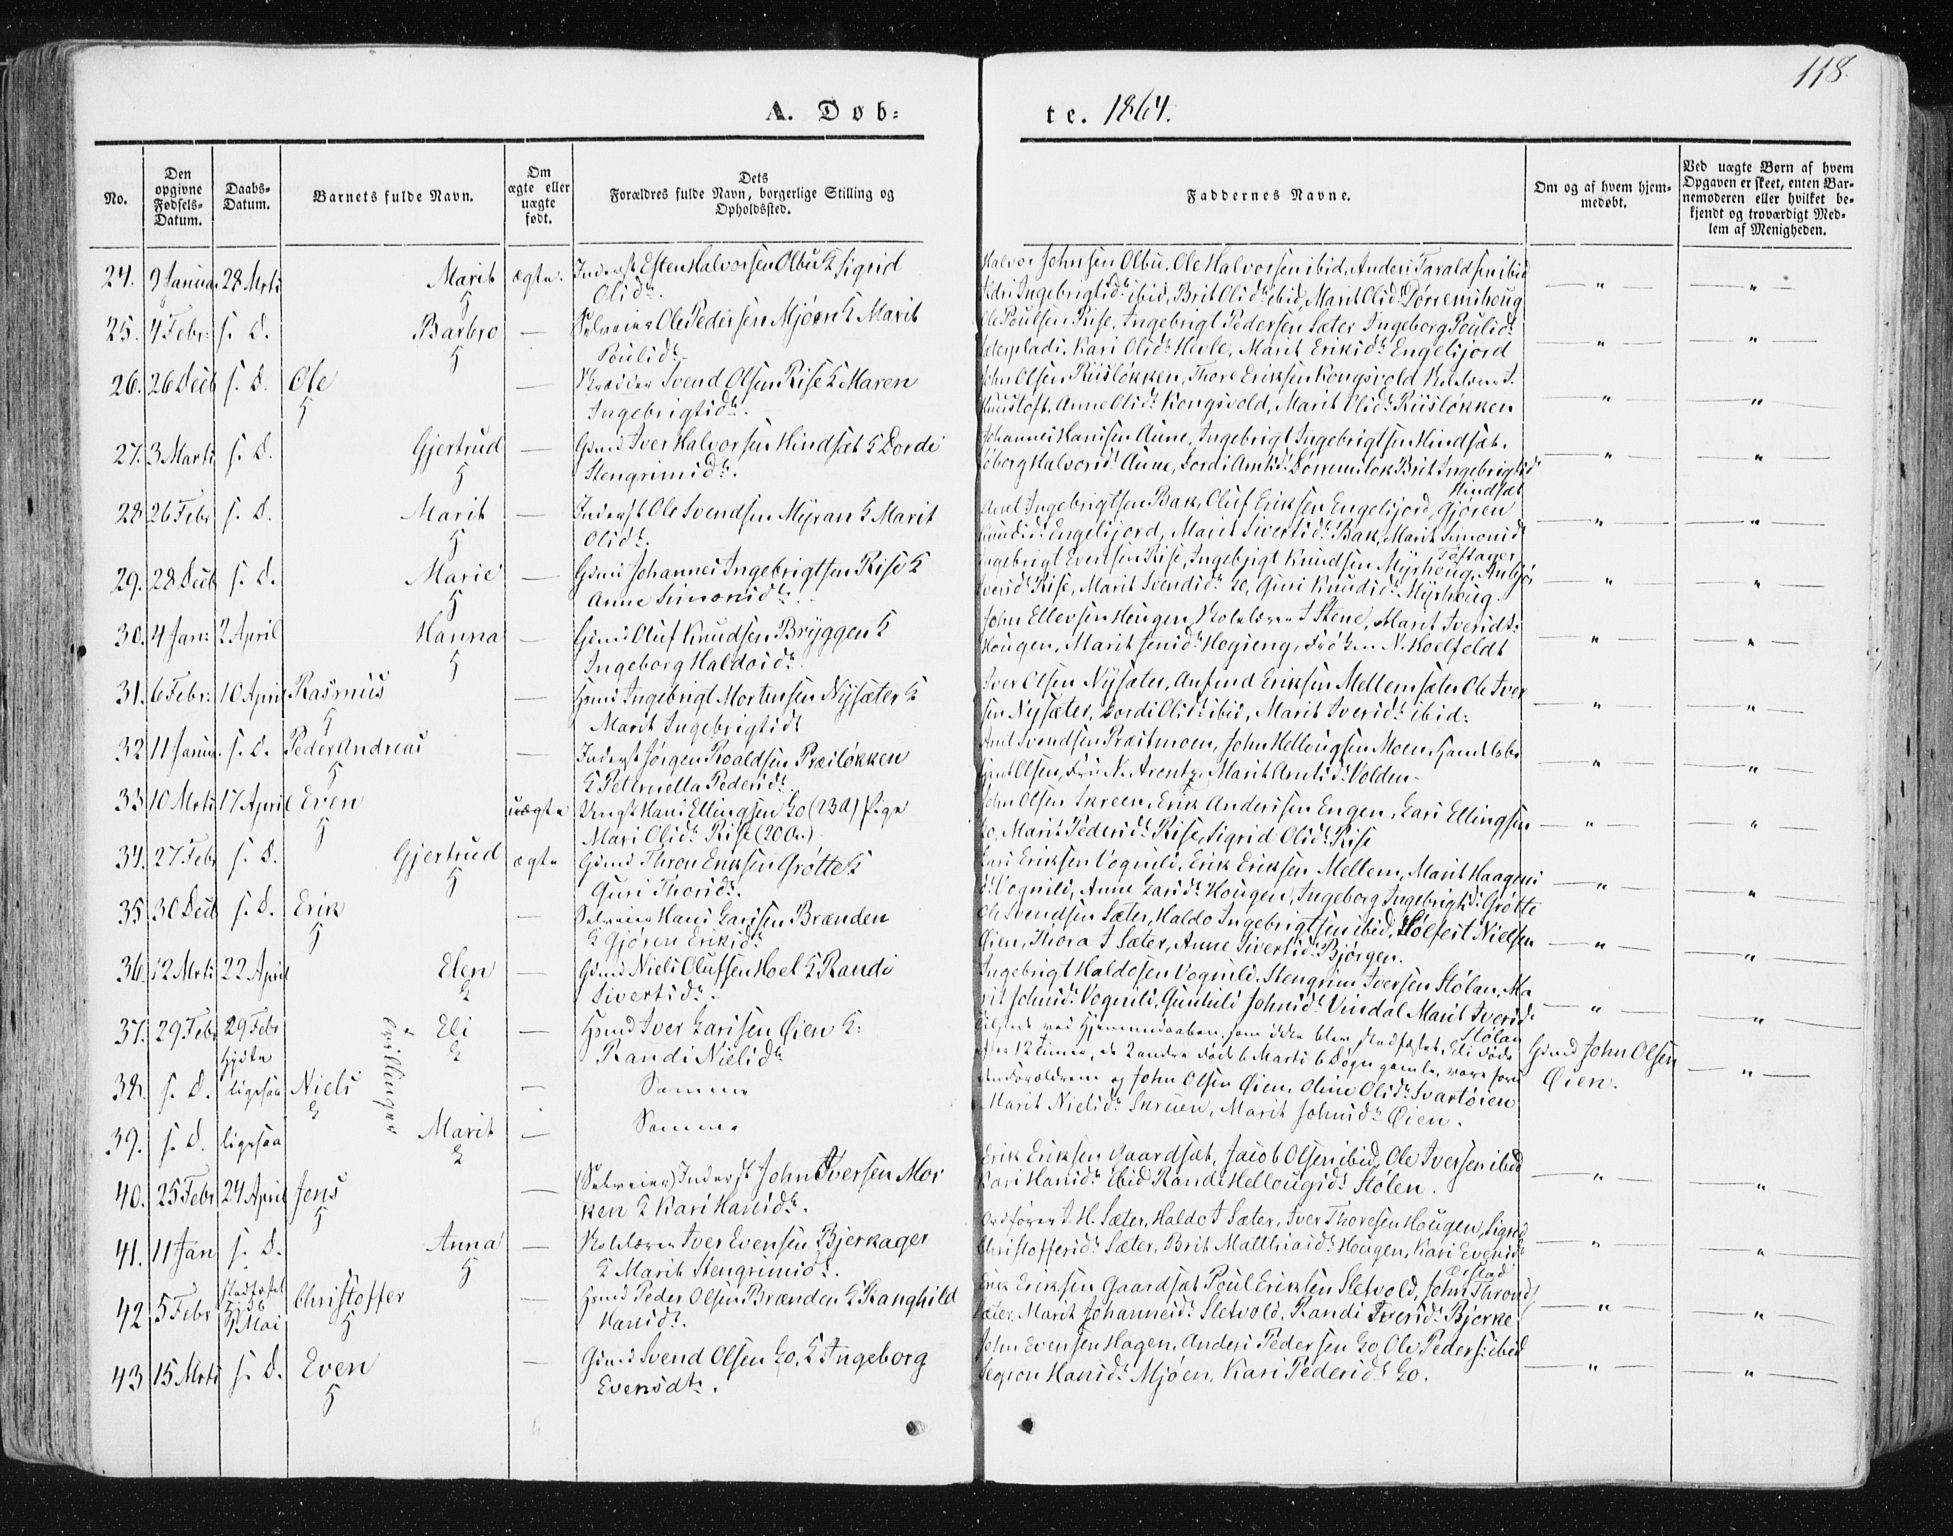 118.
A. Døb=
te. 1864.
No.
Den opgivne Fødsels-Datum.
Daabs-Datum.
Barnets fulde Navn.
Om ægte eller uægte født.
Dets Forældres fulde Navn, borgerlige Stilling og Opholdssted.
Faddernes Navne.
Om og af hvem hjem-medøbt.
Ved uægte Børn af hvem Opgaven er skeet, enten Bar-nemoderen eller hvilket be-kjendt og troværdigt Med-lem af Menigheden.
24. 9 Januar 28 Mrts Marit ægte. Inderst Esten Halvorsen Olbu & Sigrid
Olsdt.
Halvor Johnsen Olbu, Ole Halvorsen ibid, Anders Taraldsen ibid
Ingebrigtsdt ibid, Brit Olsdt ibid, Marit Olsdt Dørremshoug
25. 4 Febr. s. D. Barbro — Selveier Ole Pedersen Mjøen & Marit
Poulsdt.
Ole Poulsen Rise, Ingebrigt Pedersen Sæter, Ingeborg Poulsdt
Kari Olsdt Hevle, Marit Eriksdt Engelsjord
26. 26 Decb s. D. Ole — Svend Olsen Rise & Maren
Ingebrigtsdt.
John Olsen Riisløkken, Thore Eriksen Kongsvold
Anne Olsdt Kongsvold, Marit Olsdt Riisløkken
27. 3 Marts s. D. Gjertrud — Gmd Iver Halvorsen Hindsæt & Dordi
Stengrimsdt.
Johannes Hansen Aune, Ingebrigt Ingebrigtsen Hindsæt.
Halvorsdt Aune, Brit Ingebrigtsd
Hindsæt
28. 26 Febr s. D. Marit — Inderst Ole Svendsen Myran & Marit
Olsdt.
Arnt Ingebrigtsen Bak, Oluf Eriksen Engelsjord, Gjøren
Knudsdt Engelsjord, Marit Sivertsdt Bak, Marit Simonsdt
Toftager
29. 28 Decb s. D. Marie — Gmd Johannes Ingebrigtsen Rise &
Anne Simonsdt.
Ingebrigt Evensen Rise, Ingebrigt Knudsen Myrhoug,
Iversdt Rise, Marit Svendsdt Do, Guri Knudsdt Myrhoug.
30. 4 Jan: 2 April Hanna — Gmd Oluf Knudsen Bryggen &
Ingeborg Haldosdt.
John Ellevsen Hougen, I Stene, Marit Iversdt:
Hougen, Marit Hogseng, Frøken N. Hoelfeldt
31. 6 Febr. 10 April Rasmus — Hsmd Ingebrigt Mortensen Nysæter &
Marit Ingebrigtsdt
Iver Olsen Nysæter, Anfind Eriksen Mellemsæter Ole Iver
sen Nysæter, Dordi Olsdt ibid, Marit Iversdt ibid:
32 11 Januar. s. D. Peder Andreas — Inderst Jørgen Roaldsen Præsløkken
& Petternella Pedersdt.
Arnt Svendsen Præstmoen, John Hellougsen Moen,
Olsen, Fru N. Arentz, Marit Arntsdt Volden.
33. 10 Mrts 17 April Even uægte Ungk Hans Ellingsen Do (23 a) Pige
Mari Olsdt Rise (20 a.)
John Olsen Skreen, Erik Andersen Engen, Lars Ellingsen
Do, Marit Pedersdt Rise, Sigrid Olsdt Rise
34. 27 Febr s. D. Gjertrud ægte Gmd Thron Eriksen Grøtte &
Guri Thorsdt.
Lars Eriksen Vognild, Erik Eriksen Mellem, Marit Haagens
dt Vognild, Anne Larsdt Hougen, Ingeborg Ingebrigtsdt Grøtte
35 30 Decb s. D. Erik — Selveier Hans Larsen Brænden
& Gjøren Eriksdt
Ole Svendsen Sæter, Haldo Ingebrigtsen ibid, Nielsen
Øien, Thora I Sæter, Anne Sivertsdt Bjørgen.
36. 12 Mrts 22 April Elen — Gmd Niels Olufsen Hoel & Randi
Sivertsdt.
Ingebrigt Haldosen Vognild, Stengrim Iversen Stølan, Ma
rit Johnsdt Vognild, Gunhild Johnsdt Vindal Marit Iversdt
Stølan
37. 29 Febr 29 Febr hjdøbt Eli — Hsmd Iver Larsen Øien &:
Randi Nielsdt
Tilstede ved Hjemmedaaben, som ikke blev stadfæstet, Eli døde
efter 12 timer, de 2 andre døde 6 Marts 6 Døgn gamle, vare foru
den Forældrene og John Olsen Øien, Oline Olsdt Svartøien
Marit Nielsdt Skreen, Marit Johnsdt Øien.
Gmd John Olsen
Øien.
Trillinger
38. s. D. ligesaa Niels — Samme
39. s. D. ligesaa Marit — Samme
40. 25 Febr 24 April Jens — (Selveier) Inderst John Iversen Mor
ken & Kari Hansdt.
Erik Eriksen Gaardsæt, Jacob Olsen ibid, Ole Iversen ibid
Kari Hansdt ibid Randi Hellougsdt Stølen.
41. 11 Jan s. D. Anna — Iver Evensen Bjerkager
& Marit Stengrimsdt.
Ordfører I. H. Sæter, Haldo I Sæter, Iver Thoresen Hougen, Sigrid
Christoffersdt Sæter, Brit Matthiasdt Hougen, Kari Evensdt
42 5 Febr stadfæstet 1 Mai Christoffer — Hsmd Peder Olsen Brænden & Ranghild
Hansdt.
Erik Eriksen Gaardsæt Poul Eriksen Sletvold, John Thronds
Sæter, Marit Johannesdt Sletvold, Randi Iversdt Bjerke
43 15 Mrts s. D. Even — Gmd Svend Olsen Do, & Ingeborg
Evensdt.
John Evensen Hagen, Anders Pedersen Do, Ole Peders: ibid
Hansdt Mjøen, Kari Pedersdt Do.